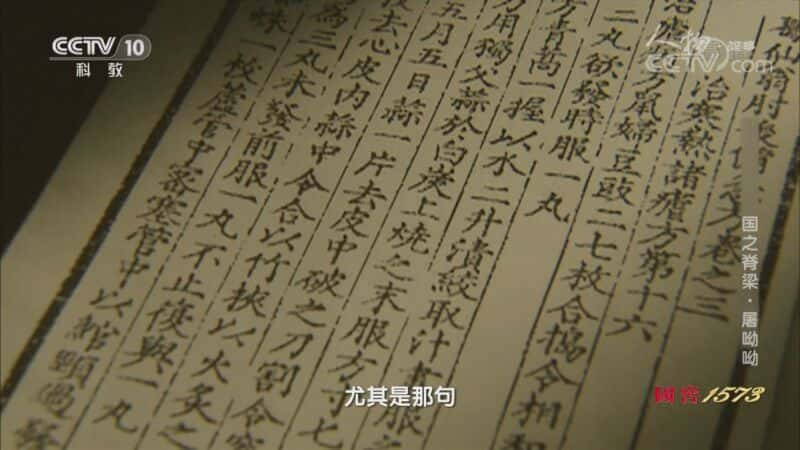 CCTV 10
科教
人物
CCTV.com
葛仙翁肘後備急方卷之三
治寒熱諸瘧方第十六
治瘧
方鼠婦豆豉二七枚合搗令相和
二丸欲發時服一丸
方青蒿一握以水二升漬絞取汁盡服之
方用獨父蒜於白炭上燒之末服方寸匕
五月五日蒜一片去皮中破之刀割
去心皮内蒜中令合以竹挾以火炙之
為三丸未發前服一丸不止復與一丸
蛛一枚蘆管中密塞管中以綰頸過發
国之脊梁·屠呦呦
國窖1573
尤其是那句